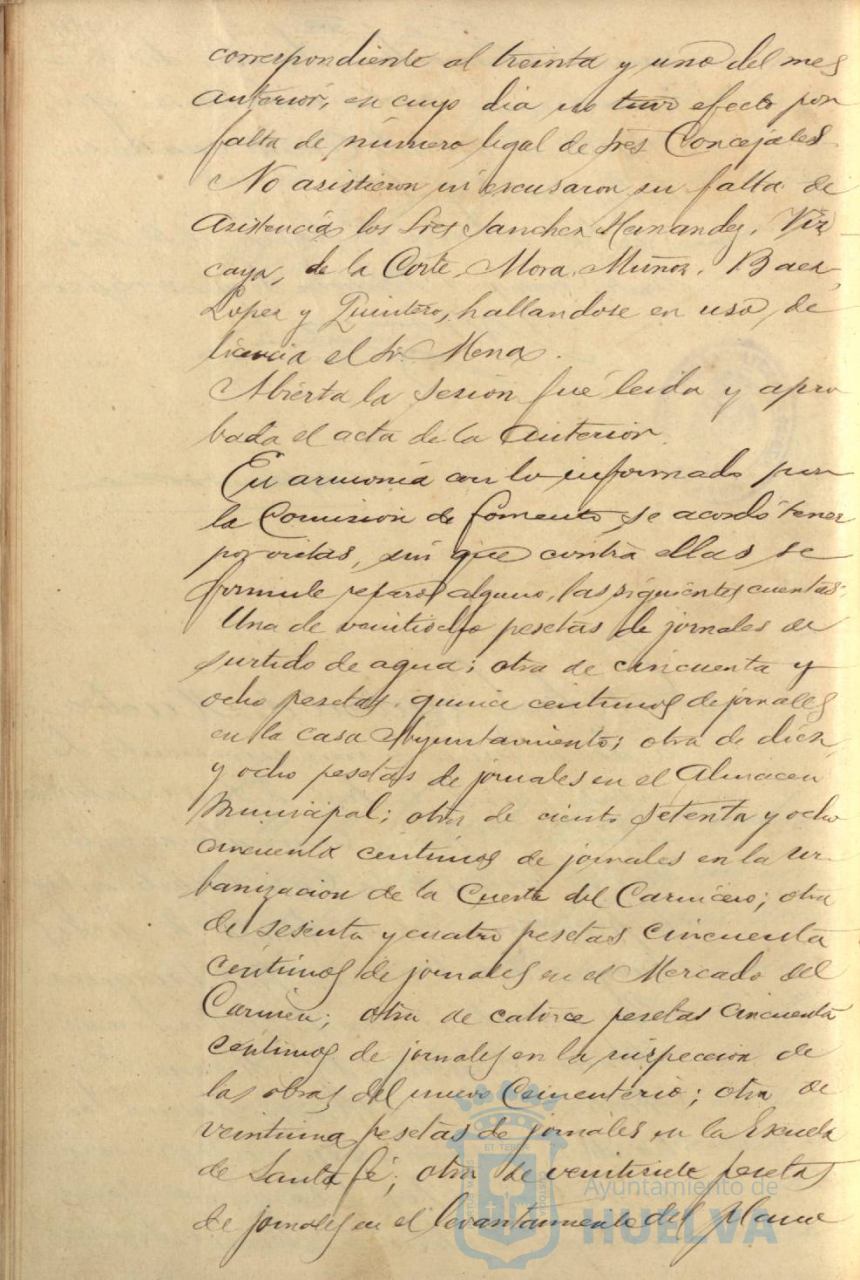 correspondiente al treinta y uno del mes
anterior, en cuyo dia no tuvo efecto por
falta de número legal de Sres Concejales.
No asistieron ni escusaron su falta de
asistencia los Sres Sanchez Hernandez, Viz
caya, de la Corte, Mora, Muñoz, Baez,
Lopez y Quintero, hallandose en uso de
licencia el Sr. Mena.
Abierta la sesion fué leida y apro
bada el acta de la anterior.
En armonía con lo informado por
la Comision de fomento, se acordó tener
por vistas, sin que contra ellas se
formule reparo alguno, las siguientes cuentas:
Una de veintiocho pesetas de jornales de
surtido de agua; otra de cincuenta y
ocho pesetas quince centimos de jornales
en la casa Ayuntamiento; otra de diez
y ocho pesetas de jornales en el Almacen
Municipal; otra de ciento setenta y ocho
cincuenta centimos de jornales en la ur
banizacion de la Cuesta del Carnicero; otra
de sesenta y cuatro pesetas cincuenta
centimos de jornales en el Mercado del
Carmen; otra de catorce pesetas cincuenta
centimos de jornales en la inspeccion de
las obras del nuevo Cementerio; otra de
veintiuna pesetas de jornales en la Escuela
de Santa fé; otra de veintisiete pesetas
de jornales en el levantamiento del plano
Ayuntamiento de
HUELVA